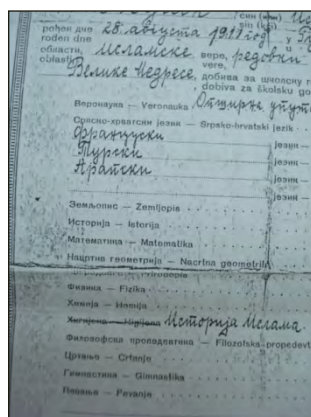 рођен дне 28. августа 1911 год. у
rođen dne
области, Исламске вере, редовни
oblasti, vere,
Велике Медресе, добива за школску г
dobiva za školsku go
Веронаука — Veronauka . Опширне упут
Српско-хрватски језик — Srpsko-hrvatski jezik
Француски језик —
Турски језик —
Арапски језик —
језик —
Земљопис — Zemljopis
Историја — Istorija
Математика — Matematika
Нацртна геометрија — Nacrtna geometrija
Физика — Fizika
Хемија — Hemija
Хигијена — Higijena Историја Ислама
Философска пропедевтика — Filozofska propedevt
Цртање — Crtanje
Гимнастика — Gimnastika
Певање — Pevanje